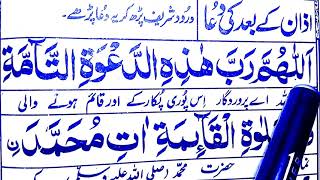 اذان کے بعد کی دُعا
درود شریف پڑھ کر یہ دعا پڑھے۔
اَللّٰهُمَّ رَبَّ هٰذِهِ الدَّعْوَةِ التَّآمَّةِ
اے پروردگار اِس پُوری پُکار کے اور قائم ہونے والی
الْقَآئِمَةِ اٰتِ مُحَمَّدَنِ
حضرت محمد (صلی اللہ علیہ وسلم